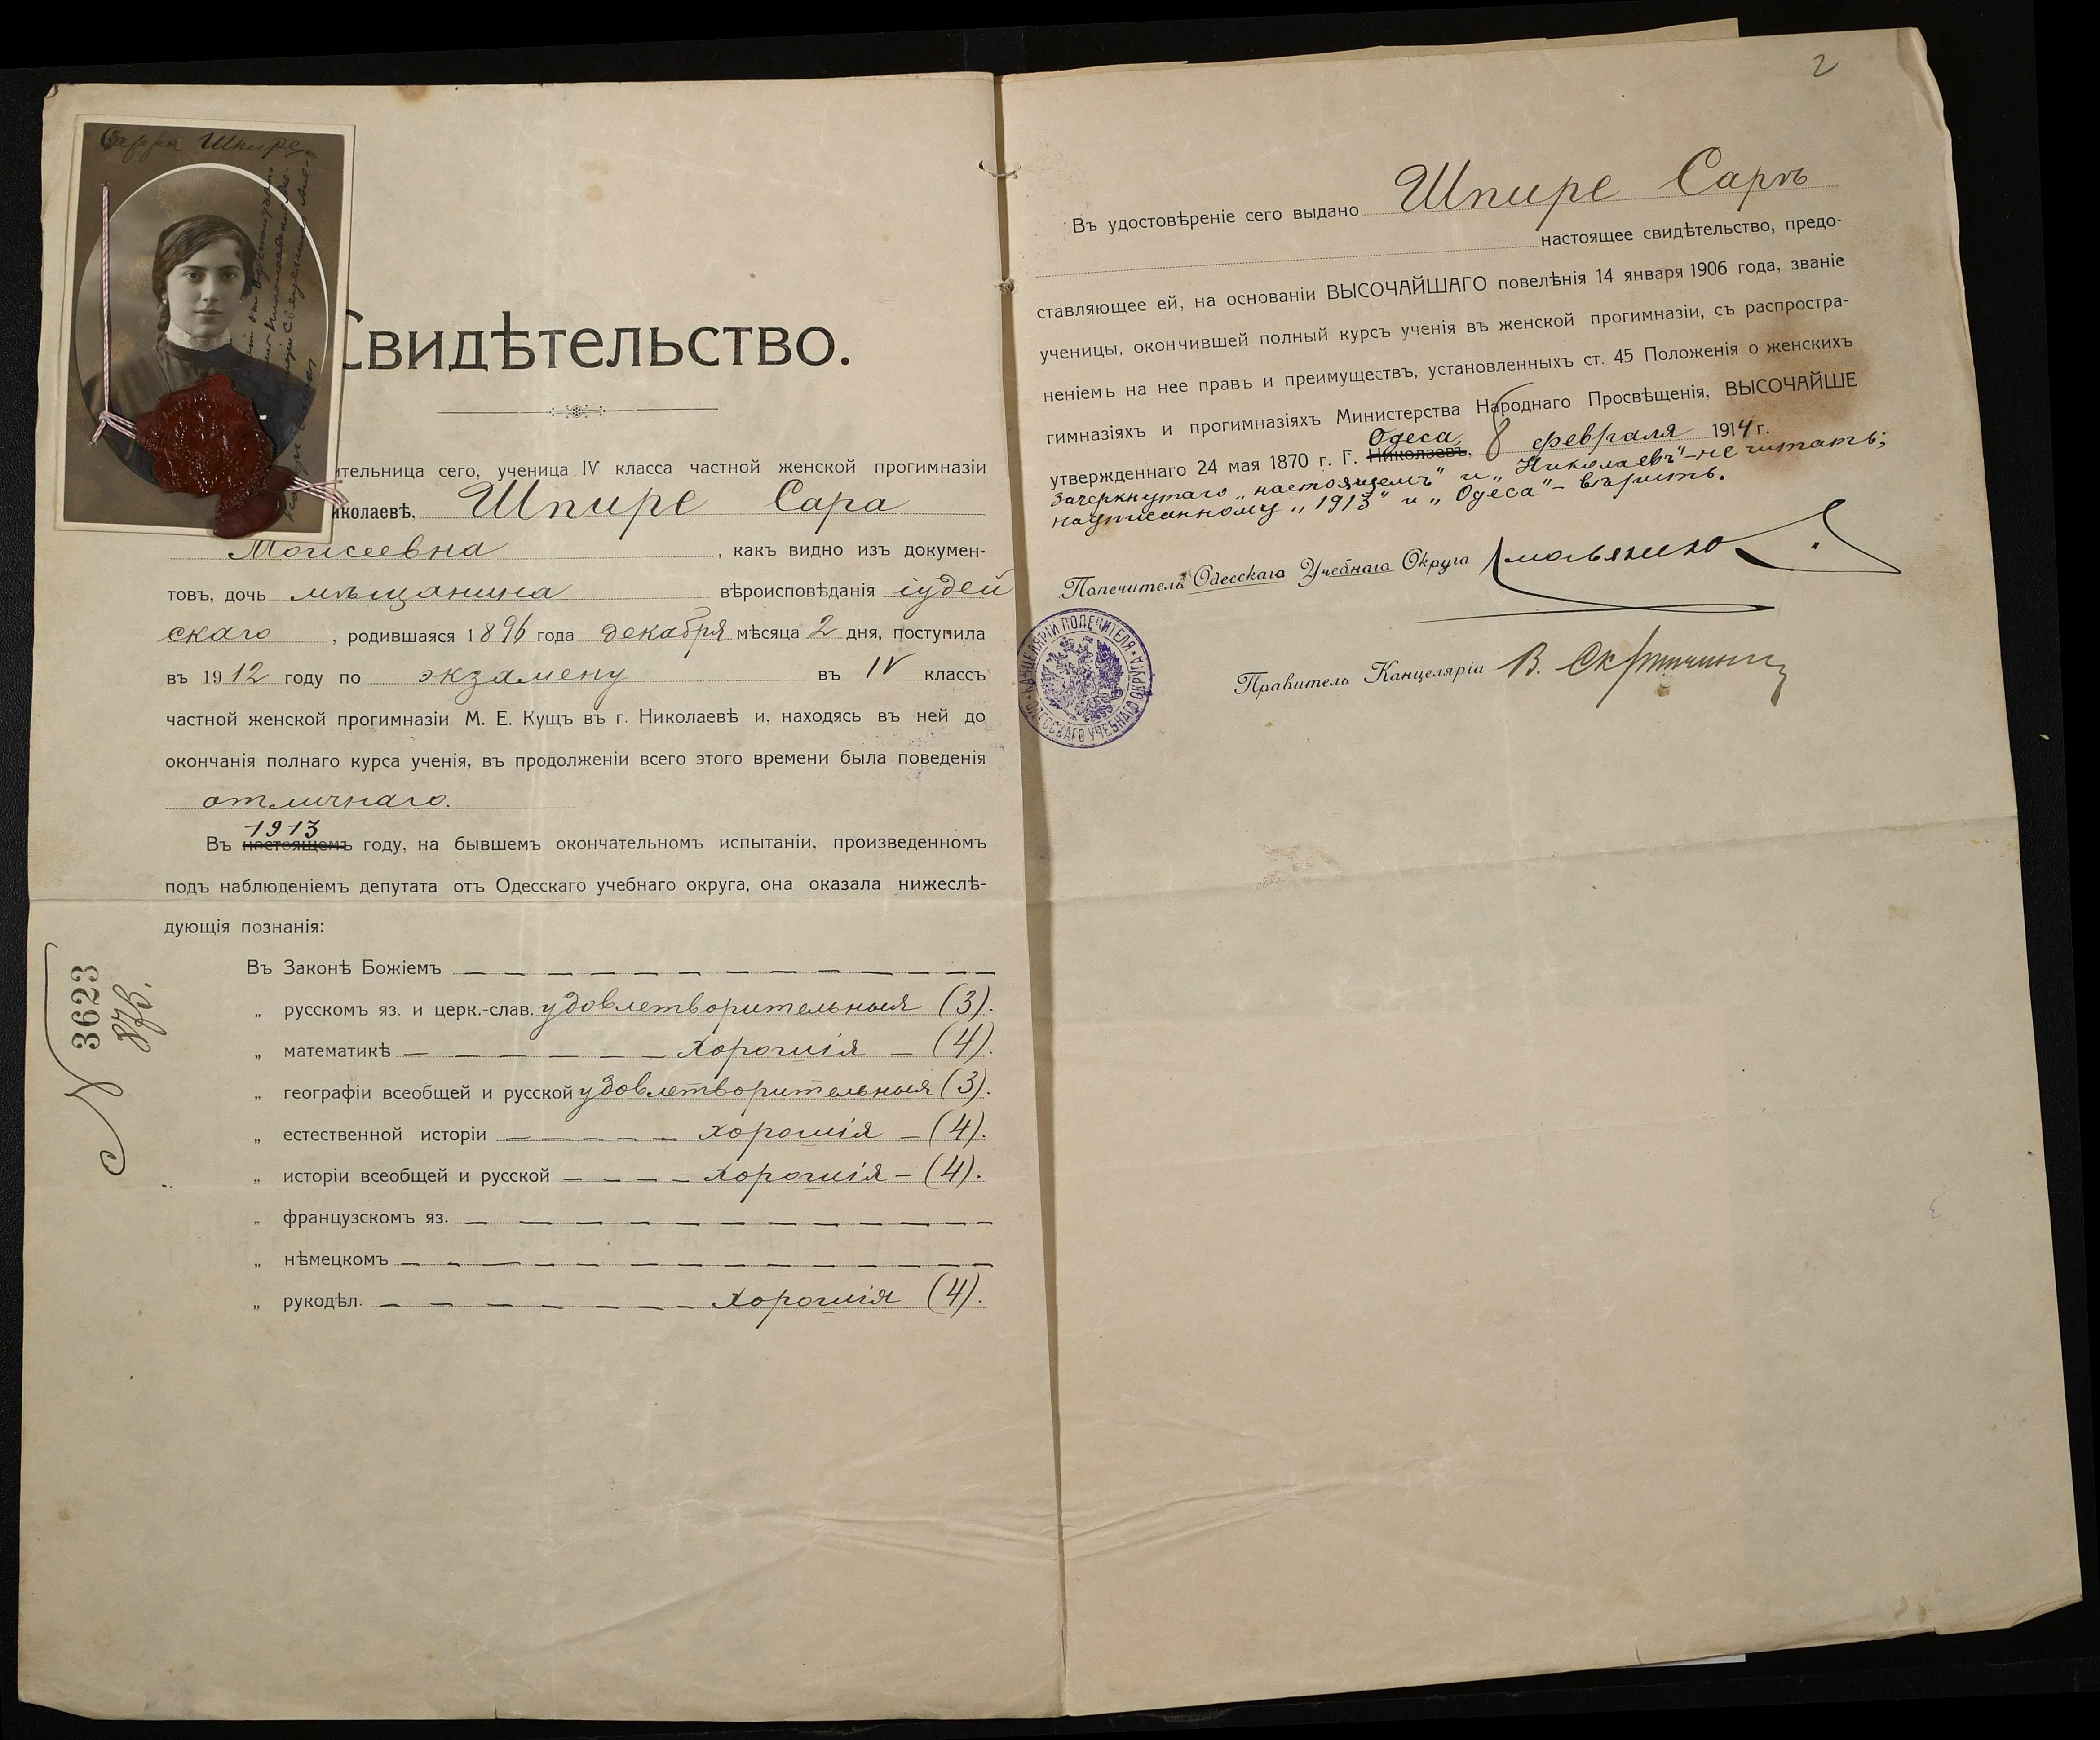 Сарра Шпире
Свидѣтельство.
ительница сего, ученица IV класса частной женской прогимназіи
иколаевѣ, Шпире Сара
Моисеевна, какъ видно изъ докумен-
товъ, дочь мѣщанина вѣроисповѣданія іудей
скаго, родившаяся 1896 года декабря мѣсяца 2 дня, поступила
въ 1912 году по экзамену въ IV классъ
частной женской прогимназіи М. Е. Кущъ въ г. Николаевѣ и, находясь въ ней до
окончанія полнаго курса ученія, въ продолженіи всего этого времени была поведенія
отличнаго.
1913
Въ настоящемъ году, на бывшемъ окончательномъ испытаніи, произведенномъ
подъ наблюденіемъ депутата отъ Одесскаго учебнаго округа, она оказала нижеслѣ-
дующія познанія:
Въ Законѣ Божіемъ — — — — — — — — — — — —
„ русскомъ яз. и церк.-слав. удовлетворительныя (3).
„ математикѣ — — — — — — — хорошія — (4).
„ географіи всеобщей и русской удовлетворительныя (3).
„ естественной исторіи — — — — — хорошія — (4).
„ исторіи всеобщей и русской — — — — хорошія — (4).
„ французскомъ яз. — — — — — — — — — — — —
„ нѣмецкомъ — — — — — — — — — — — — —
„ рукодѣл. — — — — — — — хорошія (4).
№ 3623
2
Въ удостовѣреніе сего выдано Шпире Сарѣ
настоящее свидѣтельство, предо-
ставляющее ей, на основаніи ВЫСОЧАЙШАГО повелѣнія 14 января 1906 года, званіе
ученицы, окончившей полный курсъ ученія въ женской прогимназіи, съ распростра-
неніемъ на нее правъ и преимуществъ, установленныхъ ст. 45 Положенія о женскихъ
гимназіяхъ и прогимназіяхъ Министерства Народнаго Просвѣщенія, ВЫСОЧАЙШЕ
Одеса,
утвержденнаго 24 мая 1870 г. Г. Николаевъ, 8 февраля 1914 г.
Зачеркнутаго „настоящемъ" и „Николаевъ"-не читать;
надписанному „1913" и „Одеса" – вѣрить.
Попечитель Одесскаго Учебнаго Округа
Правитель Канцеляріи В.
КАНЦЕЛЯРІИ ПОПЕЧИТЕЛЯ ОДЕССКАГО УЧЕБНАГО ОКРУГА